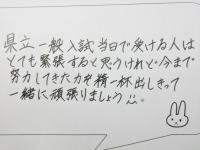 県立一般入試当日で受ける人は
とても緊張すると思うけれど今まで
努力してきた力を精一杯出しきって
一緒に頑張りましょう